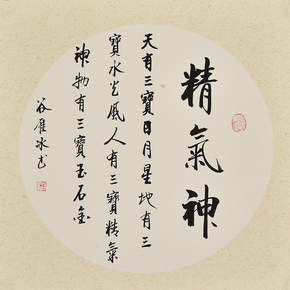 精氣神
天有三寶日月星地有三
寶水火風人有三寶精氣
神物有三寶玉石金
谷雁冰書